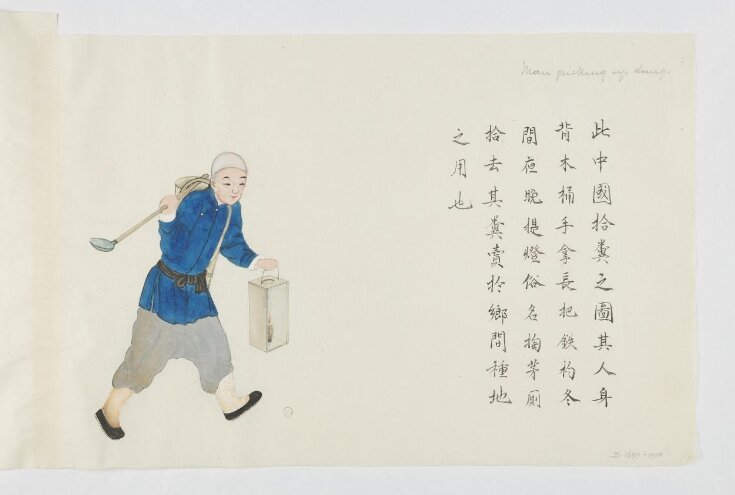 Man picking up dung.
此中國拾糞之圖其人身
背木桶手拿長把鉄杓冬
間夜晚提燈俗名掏茅厠
拾去其糞賣於鄉間種地
之用也